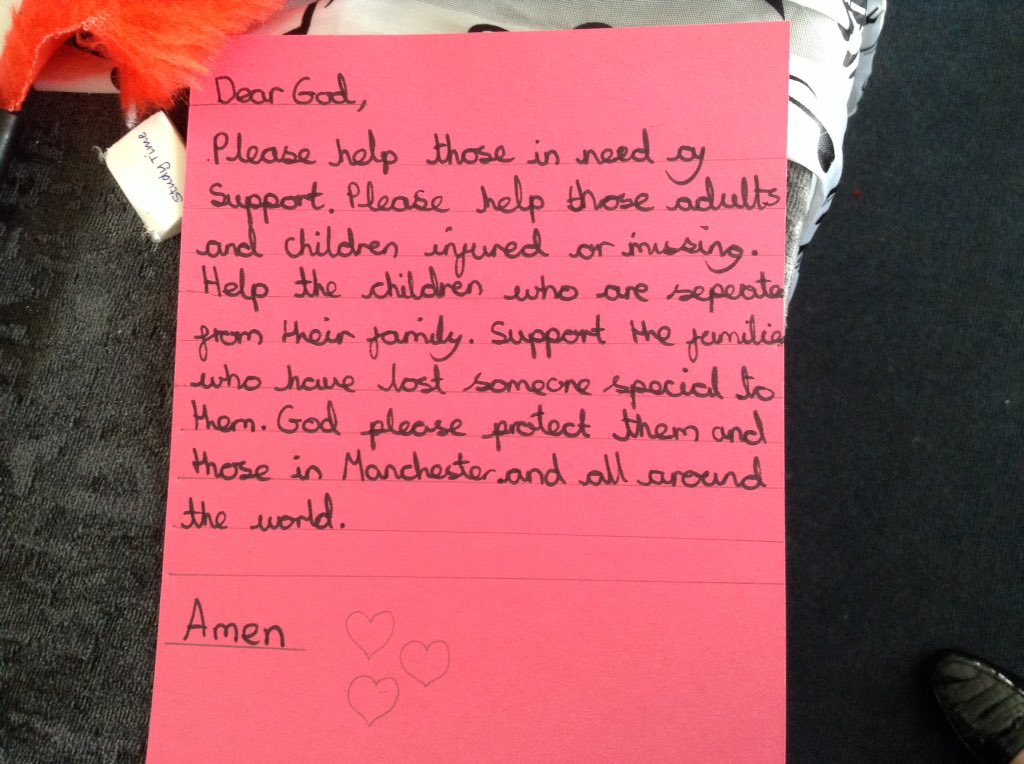 Dear God,
Please help those in need of
Support. Please help those adults
and children injured or missing.
Help the children who are seperate
from their family. Support the familie
who have lost someone special to
them. God please protect them and
those in Manchester and all around
the world.
Amen
Study Time